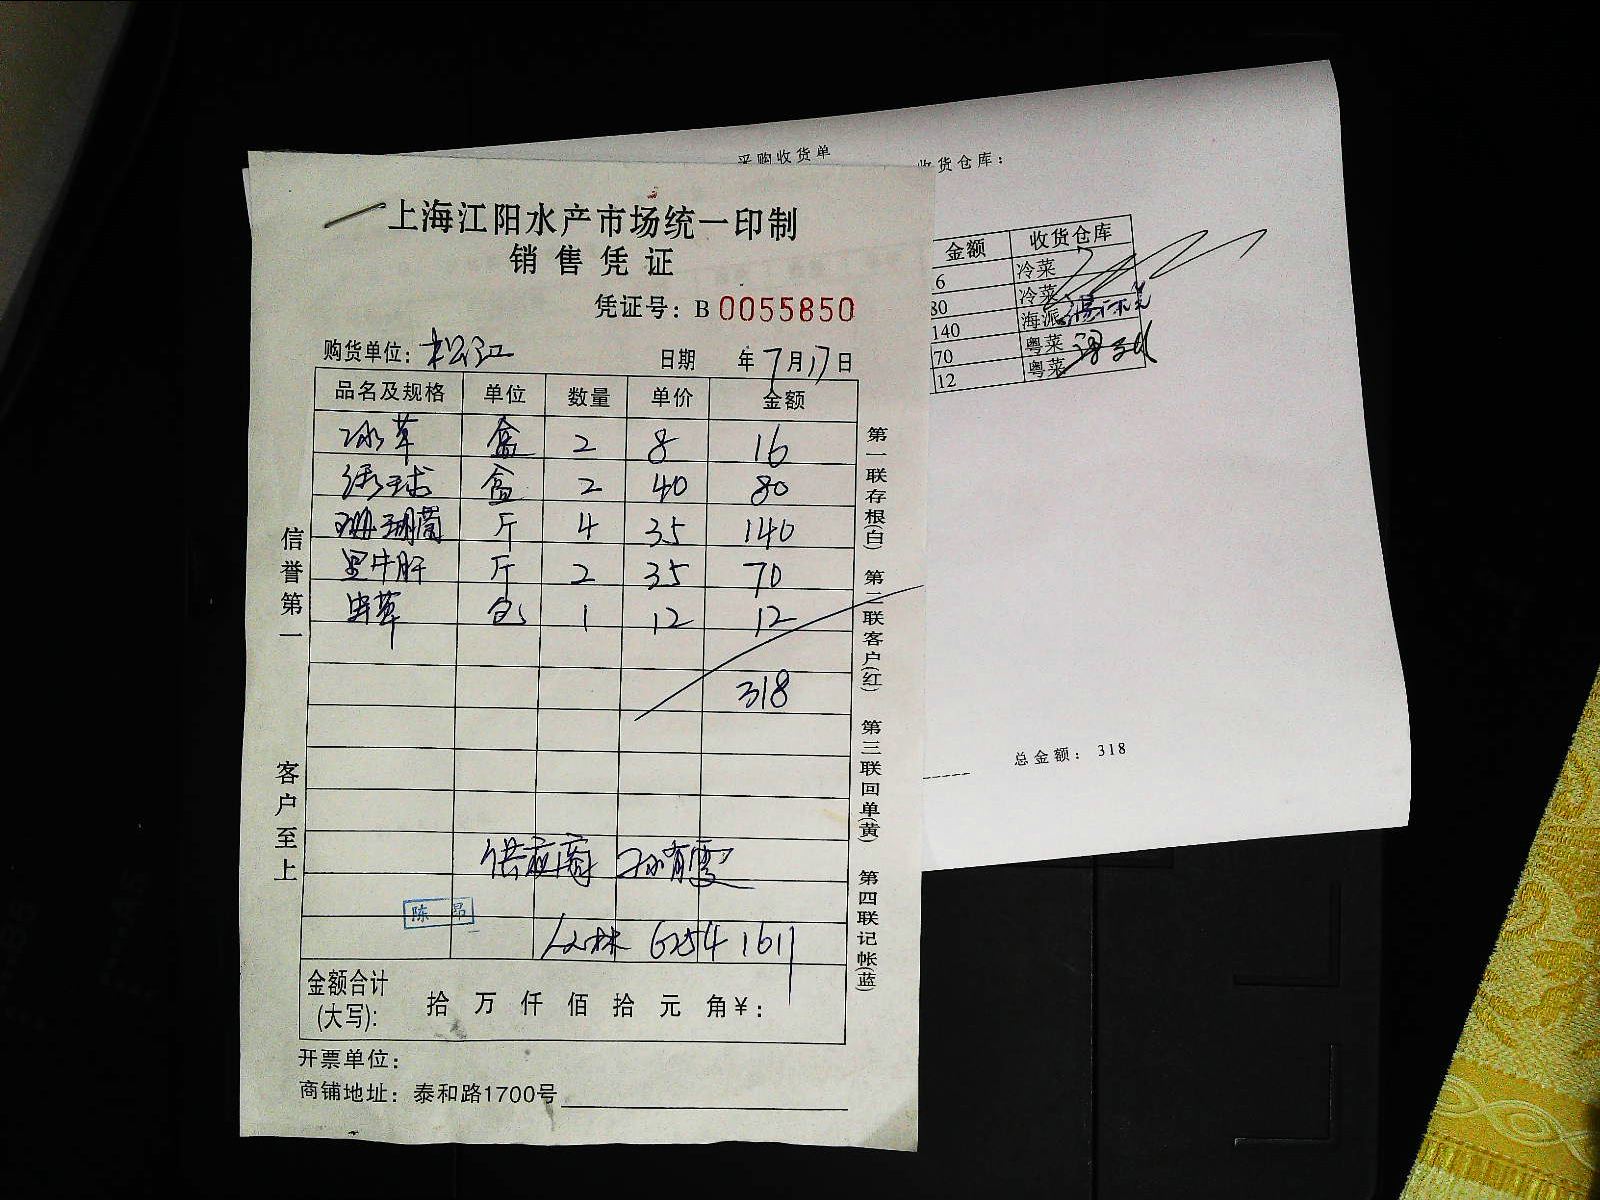 采购收货单 收货仓库：
上海江阳水产市场统一印制
销售凭证
凭证号：B 0055850
购货单位：松江 日期 年7月17日
品名及规格 单位 数量 单价 金额
冰草 盒 2 8 16
绣球 盒 2 40 80
珊瑚菌 斤 4 35 140
黑牛肝 斤 2 35 70
虫草 包 1 12 12
318
供应商 孙有雯
6254 1611
陈 昂
金额合计
(大写)： 拾 万 仟 佰 拾 元 角￥：
开票单位：
商铺地址：泰和路1700号
信誉第一
客户至上
第一联存根(白) 第二联客户(红) 第三联回单(黄) 第四联记帐(蓝)
金额 收货仓库
6 冷菜
80 冷菜
140 海派
70 粤菜
12 粤菜
总金额：318